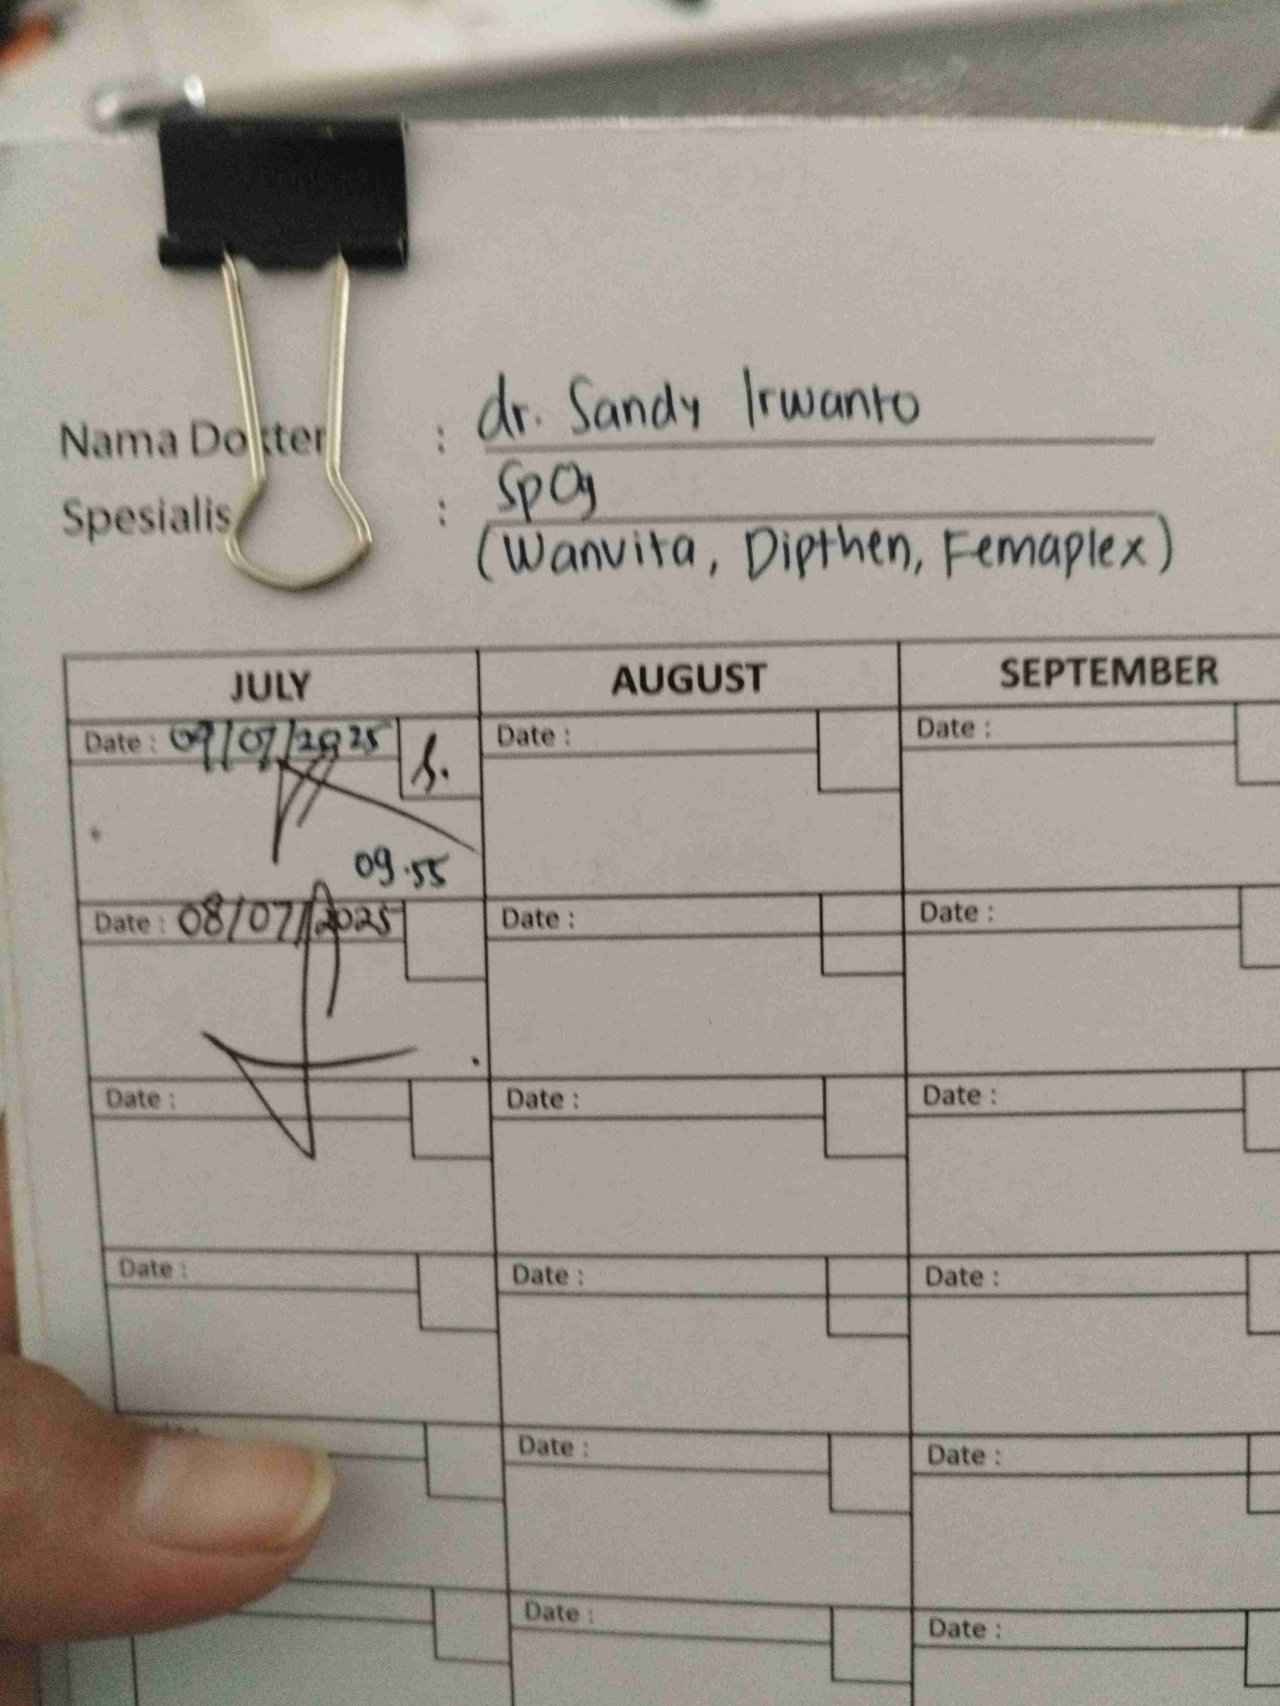 Nama Dokter : dr. Sandy Irwanto
Spesialis : SpOg
(Wanvita, Dipthen, Femaplex)
JULY AUGUST SEPTEMBER
Date : 09/07/2025 Date : Date :
09.55
Date : 08/07/2025 Date : Date :
Date : Date : Date :
Date : Date : Date :
Date : Date :
Date : Date :